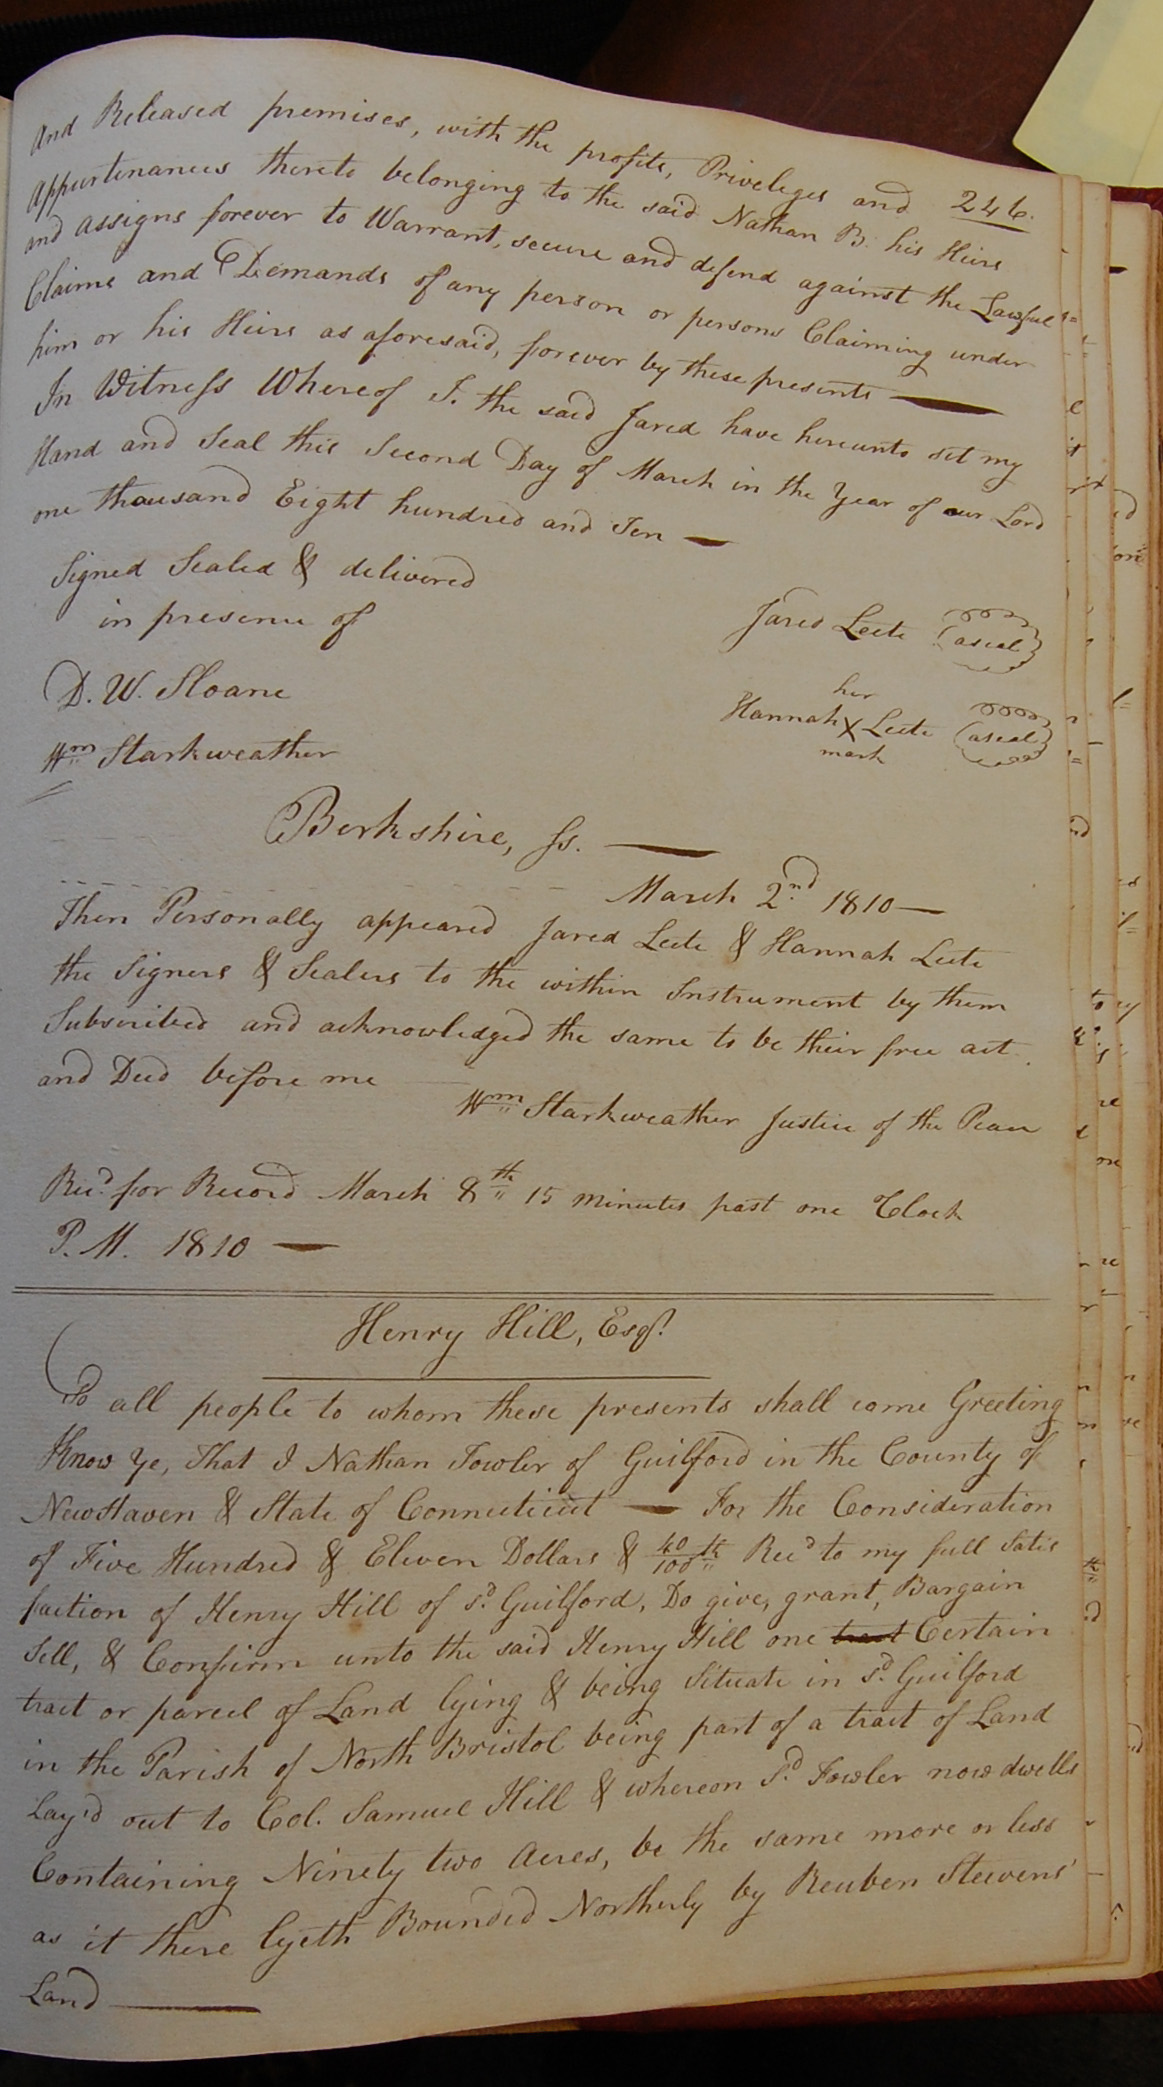 246.
And Released premises, with the profits, Priveleges and
Appurtenances thereto belonging to the said Nathan B. his Heirs
and assigns forever to Warrant, secure and defend against the Lawful
Claims and Demands of any person or persons Claiming under
him or his Heirs as aforesaid, forever by these presents —
In Witness Whereof I. the said Jared have hereunto set my
Hand and Seal this Second Day of March in the Year of our Lord
one thousand Eight hundred and Ten —
Signed Sealed & delivered
in presence of
Jared Leete (a seal)
D. W. Sloane
her
Hannah X Leete (a seal)
mark
Wm Starkweather
Berkshire, Ss. —
March 2nd 1810 —
Then Personally appeared Jared Leete & Hannah Leete
the Signers & Sealers to the within Instrument by them
Subscribed and acknowledged the same to be their free act
and Deed before me
Wm Starkweather Justice of the Peace
Recd. for Record March 8th 15 minutes past one Clock
P. M. 1810 —
Henry Hill, Esqr.
To all people to whom these presents shall come Greeting
Know Ye, That I Nathan Fowler of Guilford in the County of
New Haven & State of Connecticut — For the Consideration
of Five Hundred & Eleven Dollars & 40/100th Recd to my full Satis
faction of Henry Hill of sd. Guilford, Do give, grant, Bargain
Sell, & Confirm unto the said Henry Hill one tract Certain
tract or parcel of Land lying & being Situate in sd. Guilford
in the Parish of North Bristol being part of a tract of Land
Lay'd out to Col. Samuel Hill & whereon Sd. Fowler now dwells
Containing Ninety two Acres, be the same more or less
as it there lyeth Bounded Northerly by Reuben Steevens'
Land —